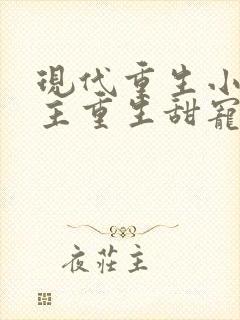 現代重生小
主重生甜寵
夜莊主